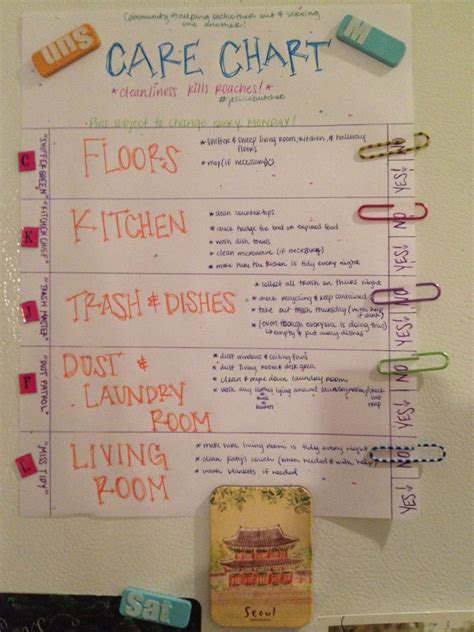 community → helping each other out & serving
one another!
URS
M
CARE CHART
*cleanliness kills roaches!*
#yessicabutcher
• Pins subject to change every MONDAY!
C
"SWIFFER QUEEN"
FLOORS
* swiffer & sweep living room, kitchen, & hallway
floors
* mop (if necessary)
YES! NO
K
"KITCHEN CHIEF"
KITCHEN
* clean countertops
* check fridge for bad or expired food
* wash dish towels
* clean microwave (if necessary)
* make sure the kitchen is tidy every night
YES! NO
J
"TRASH MASTER"
TRASH & DISHES
* collect all trash on thurs night
* check recycling & keep contained
* take out trash thursday (with help
(even though everyone is doing this)
↳ empty & put away dishes
YES! NO
P
"DUST PATROL"
DUST &
LAUNDRY
ROOM
* dust windows & ceiling fans
* dust living room & desk area
* clean & wipe down laundry room
* wash any clothes lying around laundry room/check
lint
trap
YES! NO
L
"MISS TIDY"
LIVING
ROOM
* make sure living room is tidy every night
* clean Katy's couch (when needed & with help)
* wash blankets if needed
YES! NO
Seoul
Sat